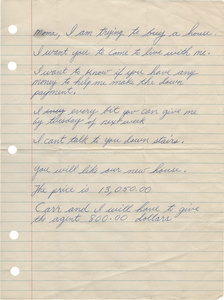 Mama, I am trying to buy a house.
I want you to come to live with me.
I want to know if you have any
money to help me make the down
payment.
I every bit you can give me
by tuesday of next week
I cant talk to you down stairs.
you will like our new house.
The price is 13,050.00
Carr and I will have to give
the agent 800.00 dollars